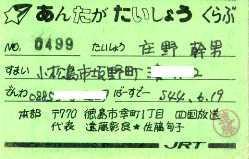 あんたが たいしょう くらぶ
NO. 0499 たいしょう 庄野 幹男
すまい 小松島市坂野町 2
でんわ 0885 ばーすでー S44.6.19
本部 〒770 徳島市幸町1丁目 四国放送
代表 遠藤彰良★佐藤旬子
JRT